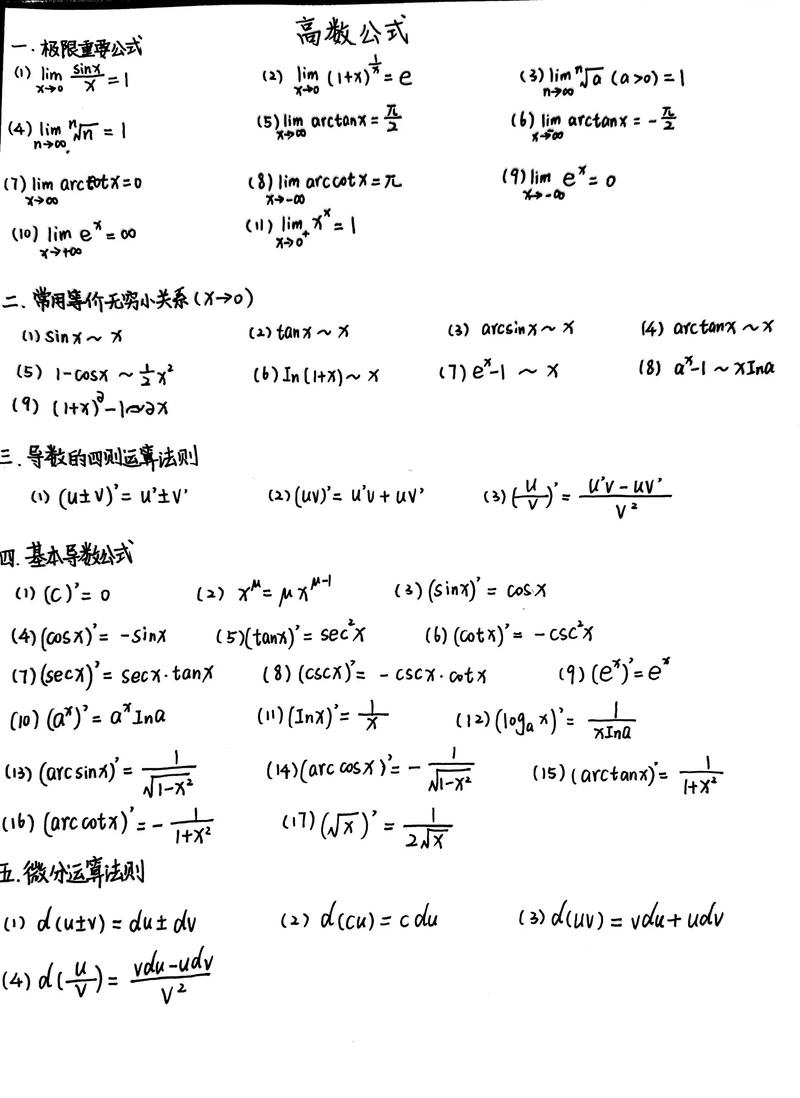 高数公式
一. 极限重要公式
(1) lim_{x→0} sinx/x = 1 (2) lim_{x→0} (1+x)^{1/x} = e (3) lim_{n→∞} ⁿ√a (a>0) = 1
(4) lim_{n→∞} ⁿ√n = 1 (5) lim_{x→∞} arctanx = π/2 (6) lim_{x→-∞} arctanx = -π/2
(7) lim_{x→∞} arccotx = 0 (8) lim_{x→-∞} arccotx = π (9) lim_{x→-∞} e^x = 0
(10) lim_{x→+∞} e^x = ∞ (11) lim_{x→0⁺} x^x = 1
二. 常用等价无穷小关系 (x→0)
(1) sinx ~ x (2) tanx ~ x (3) arcsinx ~ x (4) arctanx ~ x
(5) 1-cosx ~ 1/2 x² (6) In(1+x) ~ x (7) e^x-1 ~ x (8) a^x-1 ~ xIna
(9) (1+x)^∂-1 ~ ∂x
三. 导数的四则运算法则
(1) (u±v)' = u'±v' (2) (uv)' = u'v + uv' (3) (u/v)' = (u'v - uv')/v²
四. 基本导数公式
(1) (C)' = 0 (2) x^μ = μx^{μ-1} (3) (sinx)' = cosx
(4) (cosx)' = -sinx (5) (tanx)' = sec²x (6) (cotx)' = -csc²x
(7) (secx)' = secx·tanx (8) (cscx)' = -cscx·cotx (9) (e^x)' = e^x
(10) (a^x)' = a^x Ina (11) (Inx)' = 1/x (12) (log_a x)' = 1/(xIna)
(13) (arcsinx)' = 1/√(1-x²) (14) (arccosx)' = -1/√(1-x²) (15) (arctanx)' = 1/(1+x²)
(16) (arccotx)' = -1/(1+x²) (17) (√x)' = 1/(2√x)
五. 微分运算法则
(1) d(u±v) = du±dv (2) d(cu) = cdu (3) d(uv) = vdu + udv
(4) d(u/v) = (vdu-udv)/v²